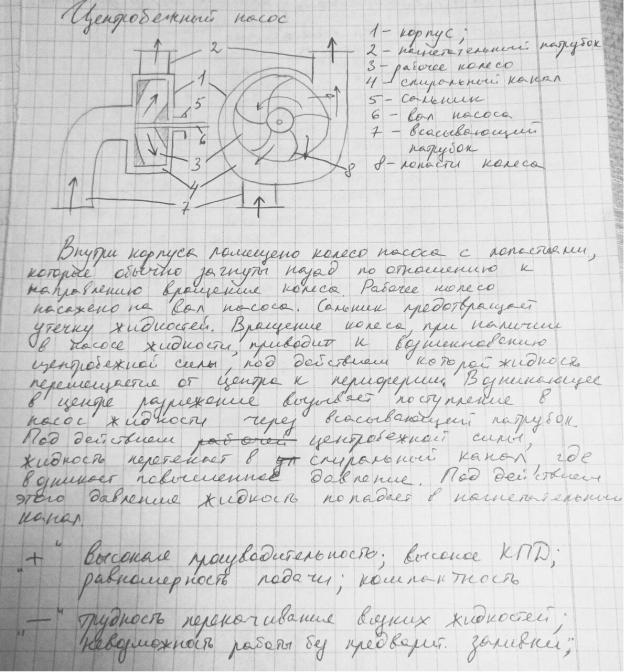 Центробежный насос
1 – корпус;
2 – нагнетательный патрубок
3 – рабочее колесо
4 – спиральный канал
5 – сальник
6 – вал насоса
7 – всасывающий
патрубок
8 – лопасти колеса
2
1
5
6
3
4
7
8
Внутри корпуса помещено колесо насоса с лопастями,
которые обычно загнуты назад по отношению к
направлению вращение колеса. Рабочее колесо
насажено на вал насоса. Сальник предотвращает
утечку жидкостей. Вращение колеса, при наличии
в насосе жидкости, приводит к возникновению
центробежной силы, под действием которой жидкость
перемещается от центра к периферии. Возникающее
в центре разрежение вызывает поступление в
насос жидкости через всасывающий патрубок.
Под действием рабочей центробежной силы,
жидкость перетекает в спиральный канал где
возникает повышенное давление. Под действием
этого давление жидкость попадает в нагнетательный
канал
"+" Высокая производительность; высокое КПД;
равномерность подачи; компактность
"—" трудность перекачивание вязких жидкостей;
невозможность работы без предварит. заливки;